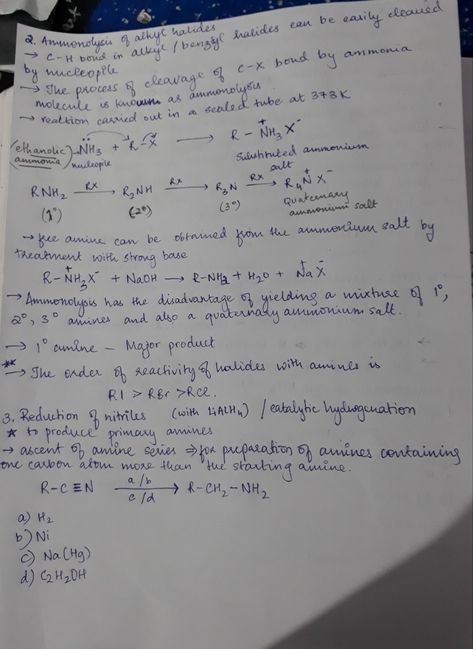 2. Ammonolysis of alkyl halides
→ C-H bond in alkyl / benzyl halides can be easily cleaved
by nucleopile
→ The process of cleavage of C-X bond by ammonia
molecule is known as ammonolysis
→ reaction carried out in a sealed tube at 373K
(ethanolic ammonia) N̈H₃ + R-X → R-N⁺H₃X⁻
nucleopile Substituted ammonium salt
RNH₂ —RX→ R₂NH —RX→ R₃N —RX→ R₄N⁺X⁻
(1°) (2°) (3°) Quaternary ammonium salt
→ free amine can be obtained from the ammonium salt by
treatment with strong base
R-N⁺H₃X⁻ + NaOH → R-NH₂ + H₂O + Na⁺X⁻
→ Ammonolysis has the disadvantage of yielding a mixture of 1°,
2°, 3° amines and also a quaternary ammonium salt.
→ 1° amine - Major product
** → The order of reactivity of halides with amines is
RI > RBr > RCl.
3. Reduction of nitriles (with LiAlH₄) / catalytic hydrogenation
* to produce primary amines
→ ascent of amine series ⇒ for preparation of amines containing
one carbon atom more than the starting amine.
R-C≡N —a/b c/d→ R-CH₂-NH₂
a) H₂
b) Ni
c) Na(Hg)
d) C₂H₂OH